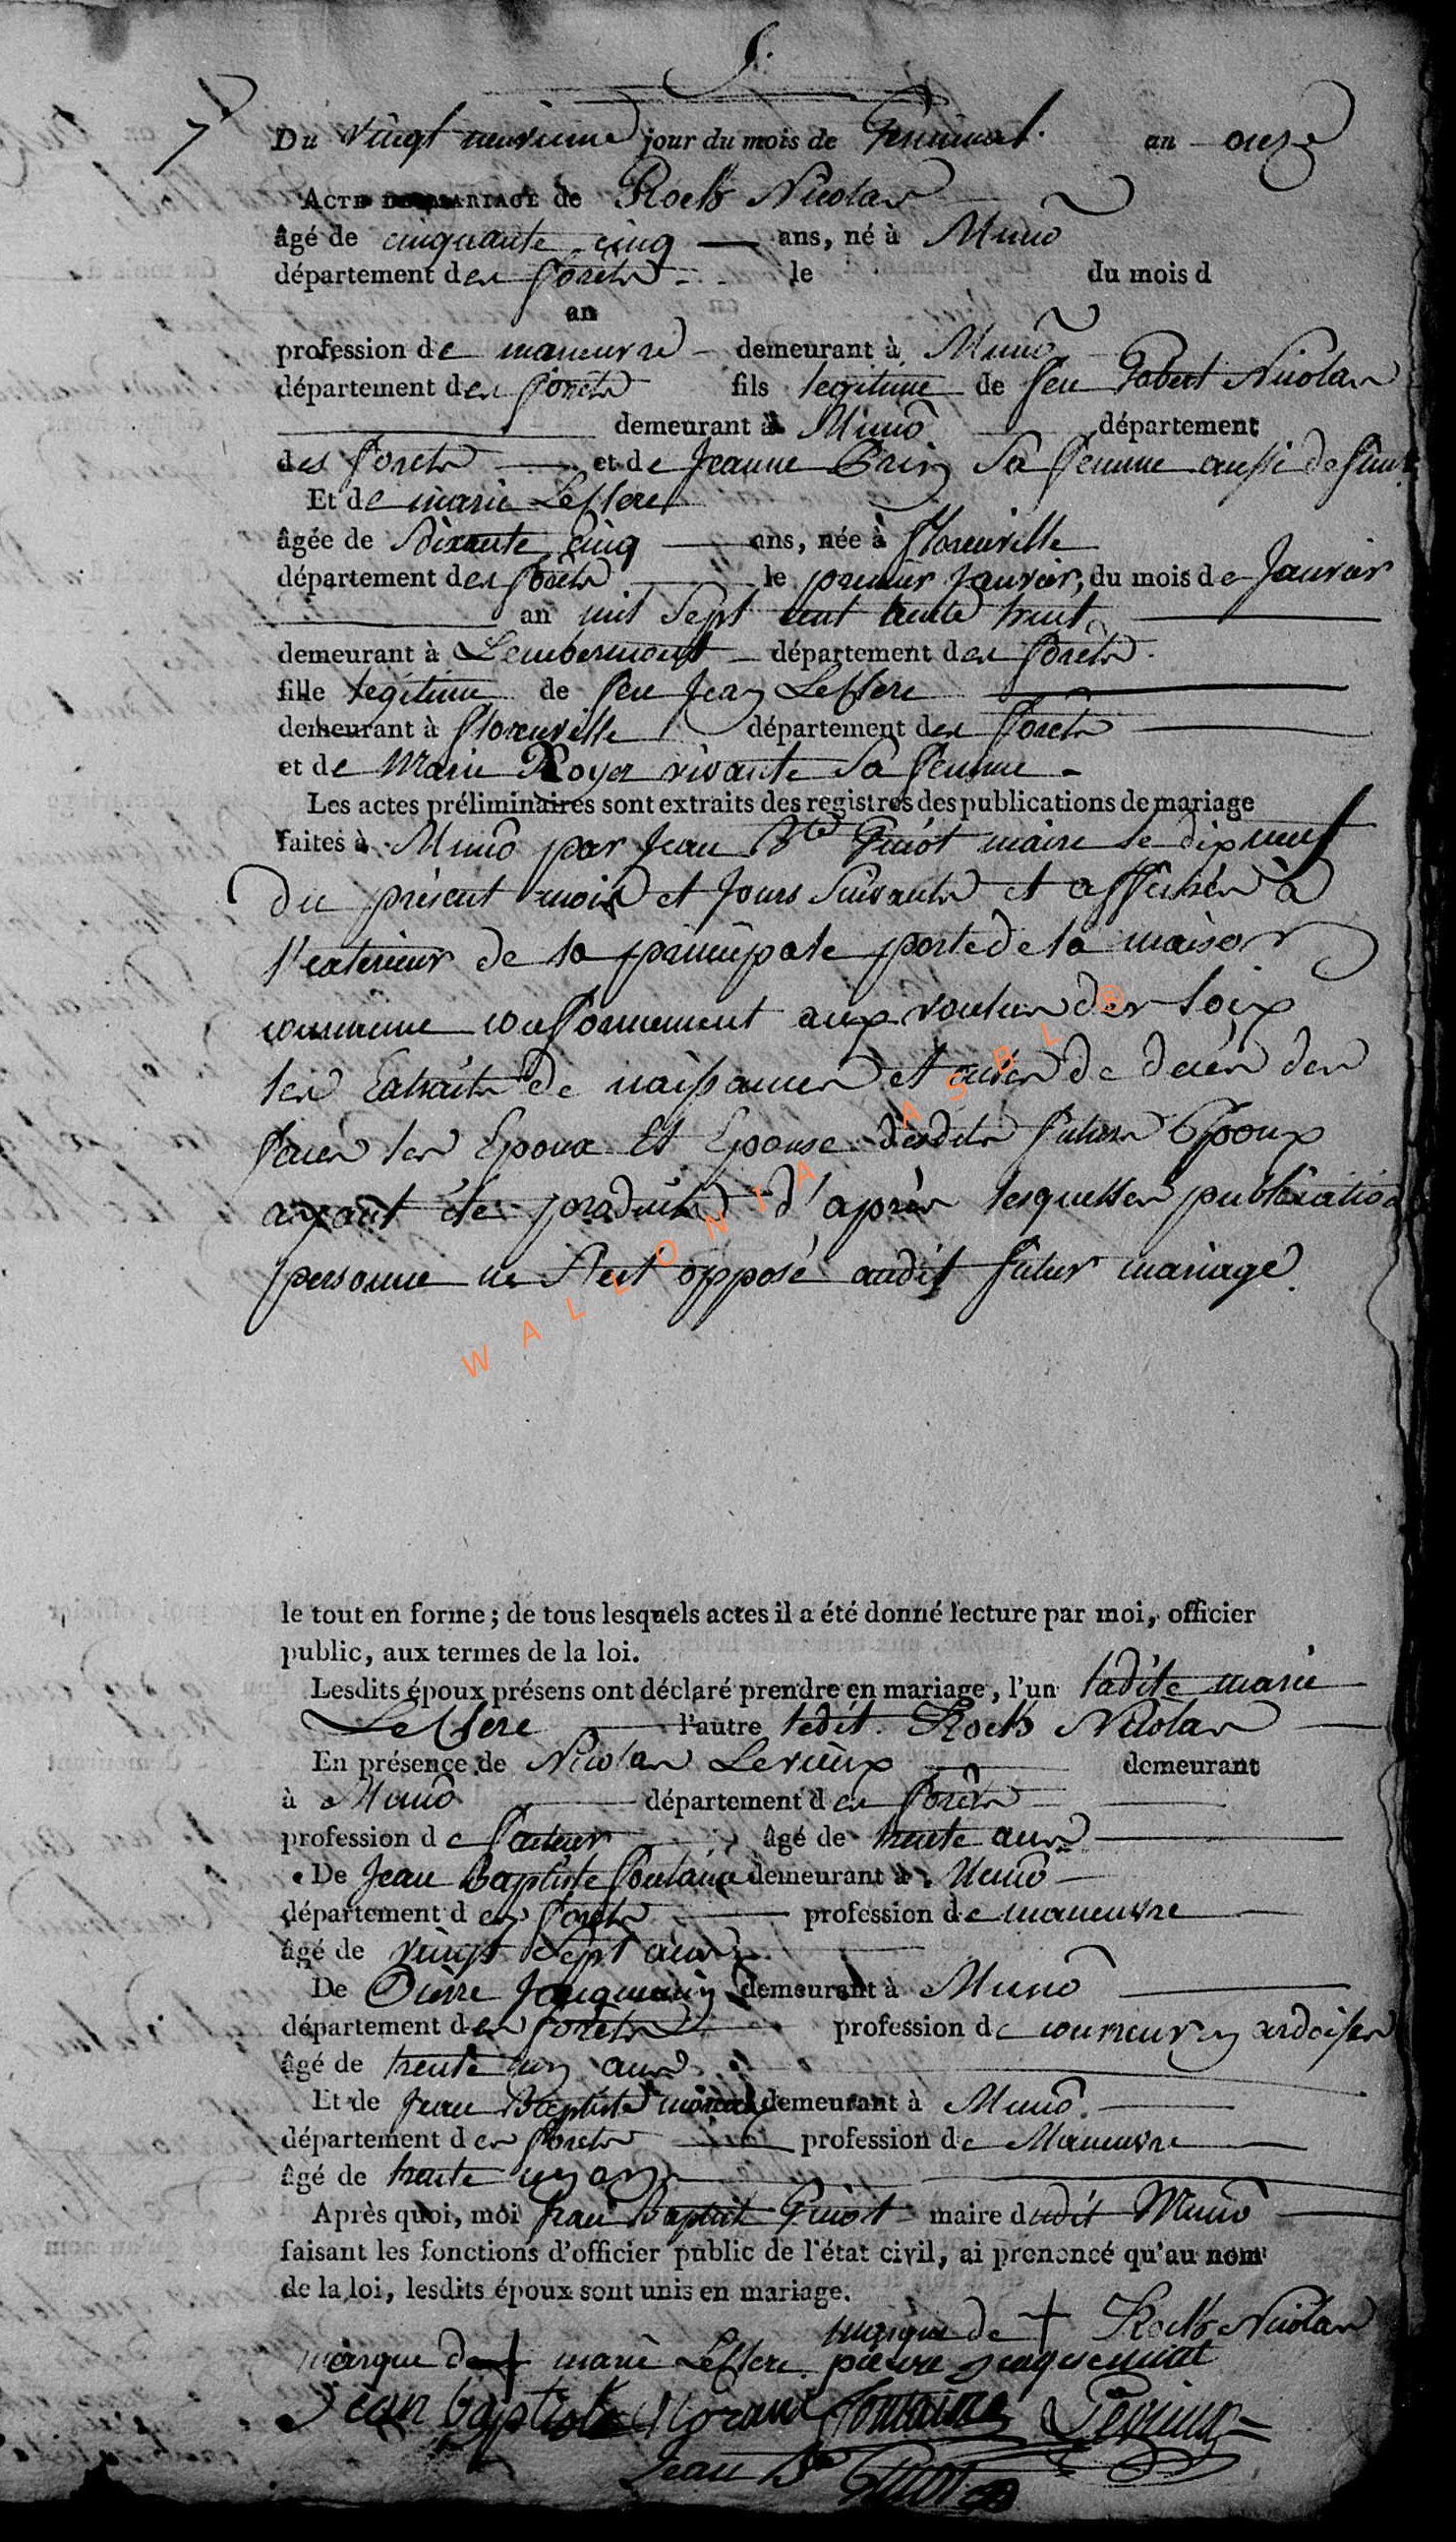 5.
7
Du vingt neuvieme jour du mois de Germinal. an onze
ACTE DE MARIAGE de Roels Nicolas
âgé de cinquante cinq ans, né à Muno
département des forêts le du mois d
an
profession de maneuvre demeurant à Muno
département des forêts fils legitime de feu Nicolas
demeurant à Muno département
des forets et de Jeanne sa femme aussi defunte
Et de marie Leclere
âgée de Soixante Cinq ans, née à florenville
département des forêts le premier Janvier, du mois de Janvier
an mil sept cent trente huit
demeurant à Lambermont département des forêts
fille legitime de feu Jean Leclere
demeurant à florenville département des forets
et de Marie Royer vivante sa femme
Les actes préliminaires sont extraits des registres des publications de mariage
faites à Muno par Jean Bte Guiot maire le dix neuf
du présent mois et Jours suivants et affichés à
l'exterieur de la principale porte de la maison
commune conformement aux voulus des loix
les Extraits de naissances et actes de décès des
les Epoux Et Epouse desdits futurs Epoux
ayant été produits d'après lesquelles publication
personne ne s'est opposé audit futur mariage.
WALLONIA ASBL ®
le tout en forme; de tous lesquels actes il a été donné lecture par moi, officier
public, aux termes de la loi.
Lesdits époux présens ont déclaré prendre en mariage, l'un ladite marie
Leclere l'autre ledit Roels Nicolas
En présence de Nicolas Lerieux demeurant
à Muno département des forêts
profession de âgé de trente ans
De Jean Baptiste fontaine demeurant à Muno
département des forets profession de maneuvre
âgé de vingt sept ans
De Pierre Jacquemin demeurant à Muno
département des forets profession de couvreur en ardoises
âgé de trente un ans
Et de Jean Baptiste demeurant à Muno.
département des forets profession de Maneuvre
âgé de trente un ans
Après quoi, moi Jean Baptist Guiot maire dudit Muno
faisant les fonctions d'officier public de l'état civil, ai prononcé qu'au nom
de la loi, lesdits époux sont unis en mariage.
marque de + Roels Nicolas
marque de + marie Leclere pierre Jacqueminet
Jean baptiste fontaine Lerieux
Jean Bte Guiot